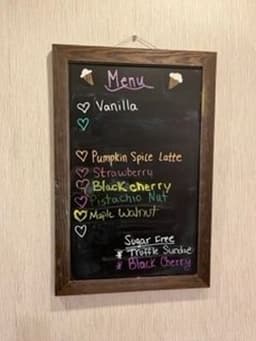 Menu
Vanilla
Pumpkin Spice Latte
Strawberry
Black cherry
Pistachio Nut
Maple Walnut
Sugar Free
* Truffle Sundae
* Black Cherry